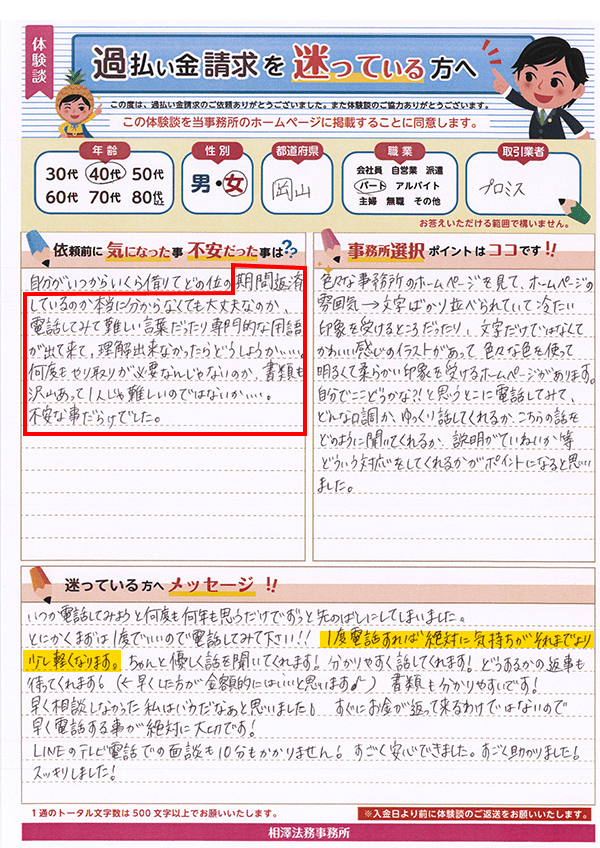 体験談
過払い金請求を迷っている方へ
この度は、過払い金請求のご依頼ありがとうございました。また体験談のご協力ありがとうございます。
この体験談を当事務所のホームページに掲載することに同意します。
年齢
30代 40代 50代
60代 70代 80代以上
性別
男・女
都道府県
岡山
職業
会社員 自営業 派遣
パート アルバイト
主婦 無職 その他
取引業者
プロミス
お答えいただける範囲で構いません。
依頼前に気になった事 不安だった事は??
自分がいつからいくら借りてどの位の期間返済
しているのか本当に分からなくても大丈夫なのか、
電話してみて難しい言葉だったり専門的な用語
が出て来て、理解出来なかったらどうしようかい…。
何度もやり取りが必要なんじゃないのか、書類も
沢山あって1人じゃ難しいのではないか…。
不安な事だらけでした。
事務所選択ポイントはココです!!
色々な事務所のホームページを見て、ホームページの
雰囲気→文字ばかり並べられていて冷たい
印象を受けるところだったり、文字だけではなくて
かわいい感じのイラストがあって色々な色を使って
明るくて柔らかい印象を受けるホームページがあります。
自分でここどうかな?!と思うとこに電話してみて、
どんな口調か、ゆっくり話してくれるか、こちらの話を
どのように聞いてくれるか、説明がていねいか等
どういう対応をしてくれるかがポイントになると思い
ました。
迷っている方へメッセージ!!
いつか電話してみようと何度も何年も思うだけでずっと先のばしにしてしまいました。
とにかくまずは1度でいいので電話してみて下さい!! 1度電話すれば絶対に気持ちがそれまでより
少し軽くなります。ちゃんと優しく話を聞いてくれます!分かりやすく話してくれます!どうするかの返事も
待ってくれます!(←早くした方が金額的にはいいと思います♪) 書類も分かりやすいです!
早く相談しなかった私はバカだなあと思いました! すぐにお金が返って来るわけではないので
早く電話する事が絶対に大切です!
LINEのテレビ電話での面談も10分もかかりません! すごく安心できました。すごく助かりました!
スッキリしました!
1通のトータル文字数は500文字以上でお願いいたします。
※入金日より前に体験談のご返送をお願いいたします。
相澤法務事務所